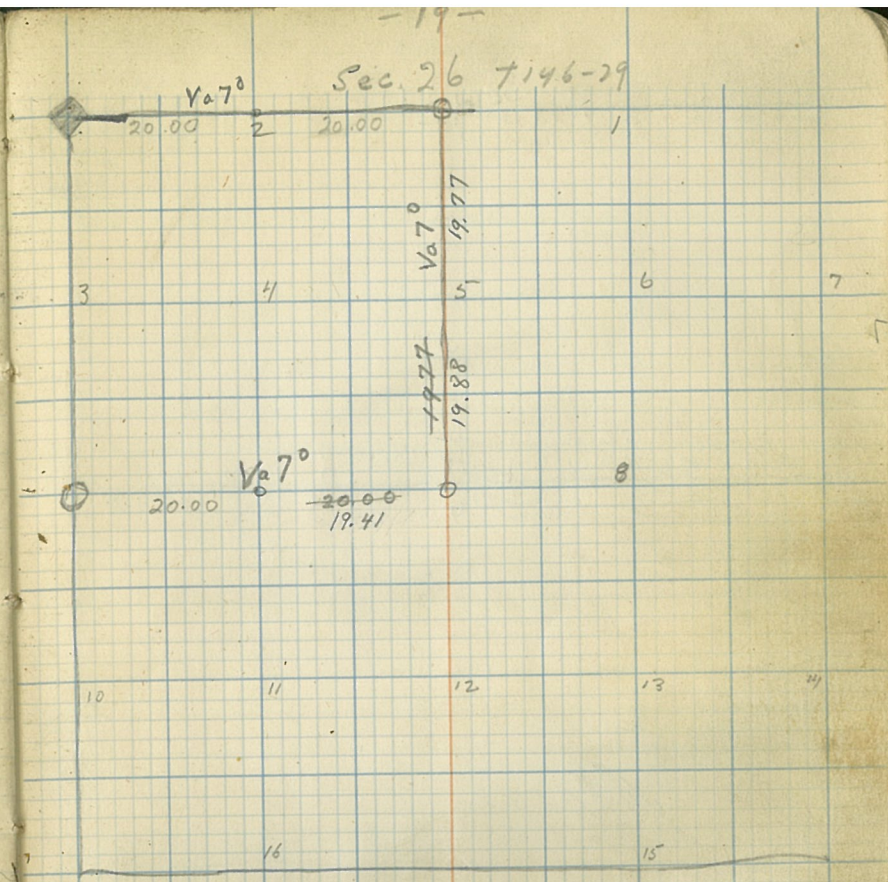 -19-
Sec. 26 T146-29
Va 7°
20.00 2 20.00 1
Va 7° 19.77
3 4 5 6 7
19.77 19.88
Va 7° 8
20.00 20.00
19.41
10 11 12 13 14
16 15